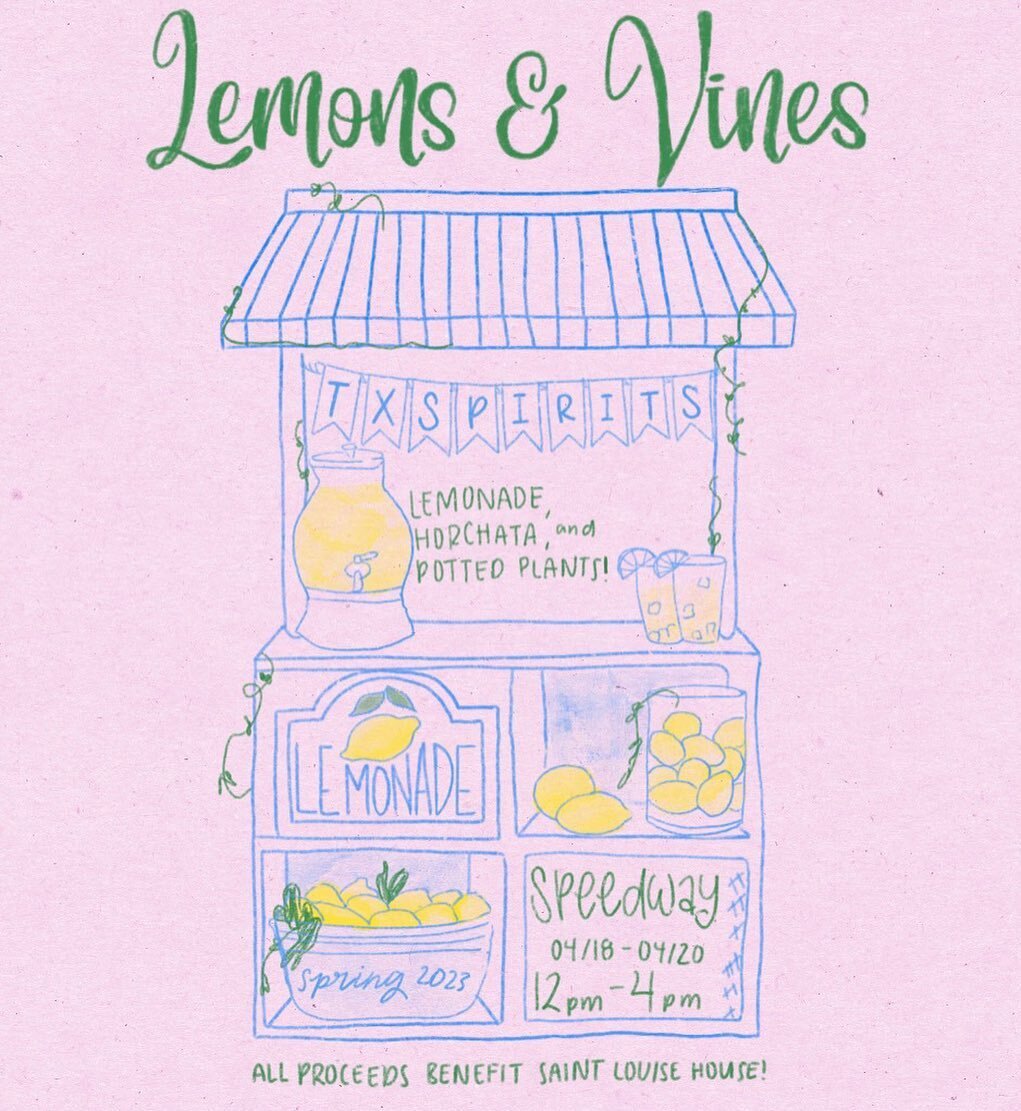 Lemons & Vines
TXSPIRITS
LEMONADE,
HORCHATA, and
POTTED PLANTS!
LEMONADE
Spring 2023
Speedway
04/18 - 04/20
12pm - 4pm
ALL PROCEEDS BENEFIT SAINT LOUISE HOUSE!